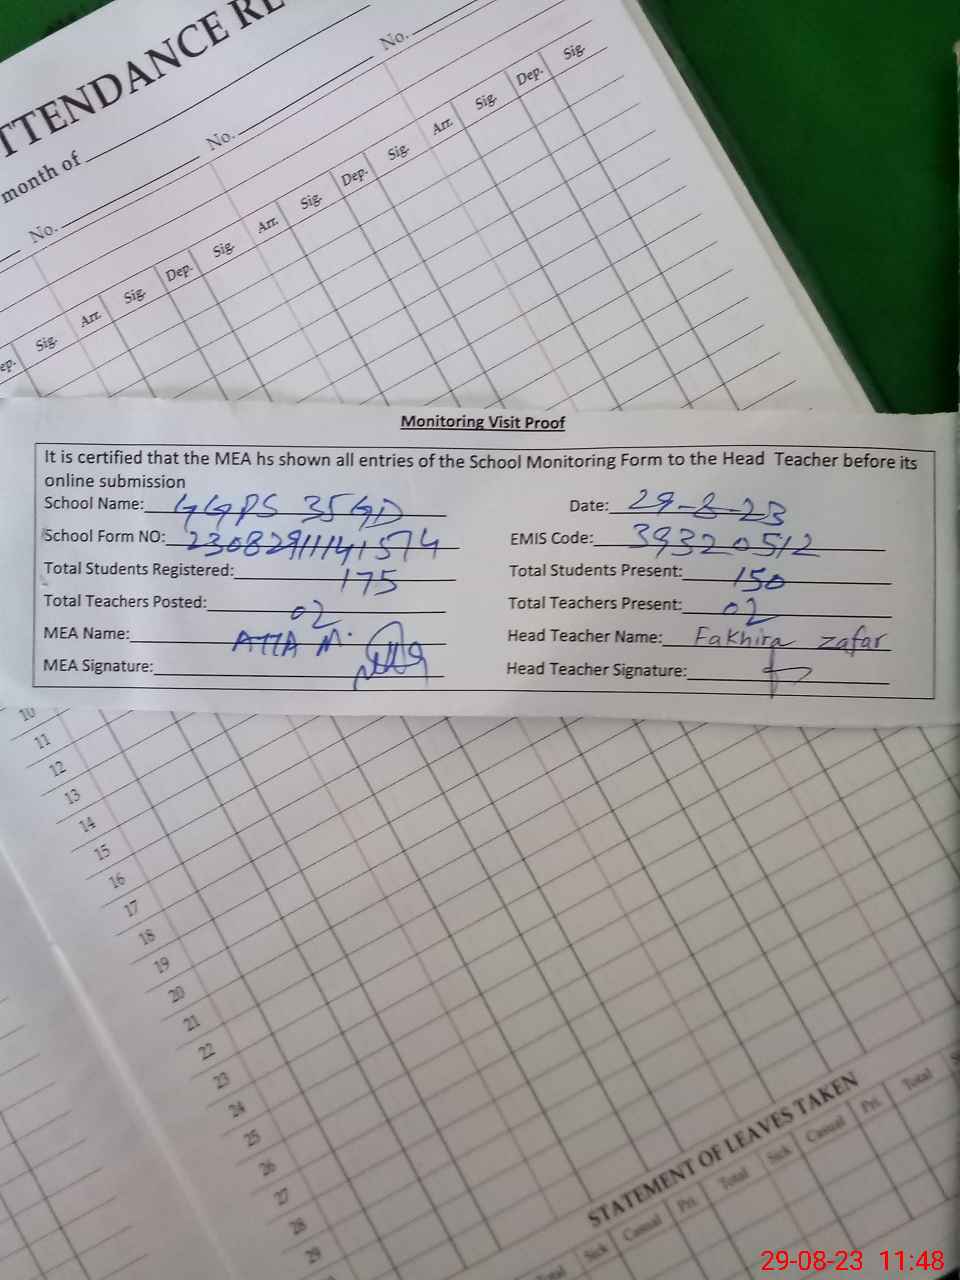 TTENDANCE RE
month of
No.
No.
No.
ep. Sig. Arr. Sig. Dep. Sig. Arr. Sig. Dep. Sig. Arr. Sig. Dep. Sig.
Monitoring Visit Proof
It is certified that the MEA hs shown all entries of the School Monitoring Form to the Head Teacher before its
online submission
School Name: GGPS 35GD Date: 29-8-23
School Form NO: 23082911141574 EMIS Code: 39320512
Total Students Registered: 175 Total Students Present: 150
Total Teachers Posted: 02 Total Teachers Present: 02
MEA Name: ATTA M. Head Teacher Name: Fakhira zafar
MEA Signature: Head Teacher Signature:
10
11
12
13
14
15
16
17
18
19
20
21
22
23
24
25
26
27
28
29
STATEMENT OF LEAVES TAKEN
Total Sick Casual Pri. Total Sick Casual Pri. Total
29-08-23 11:48